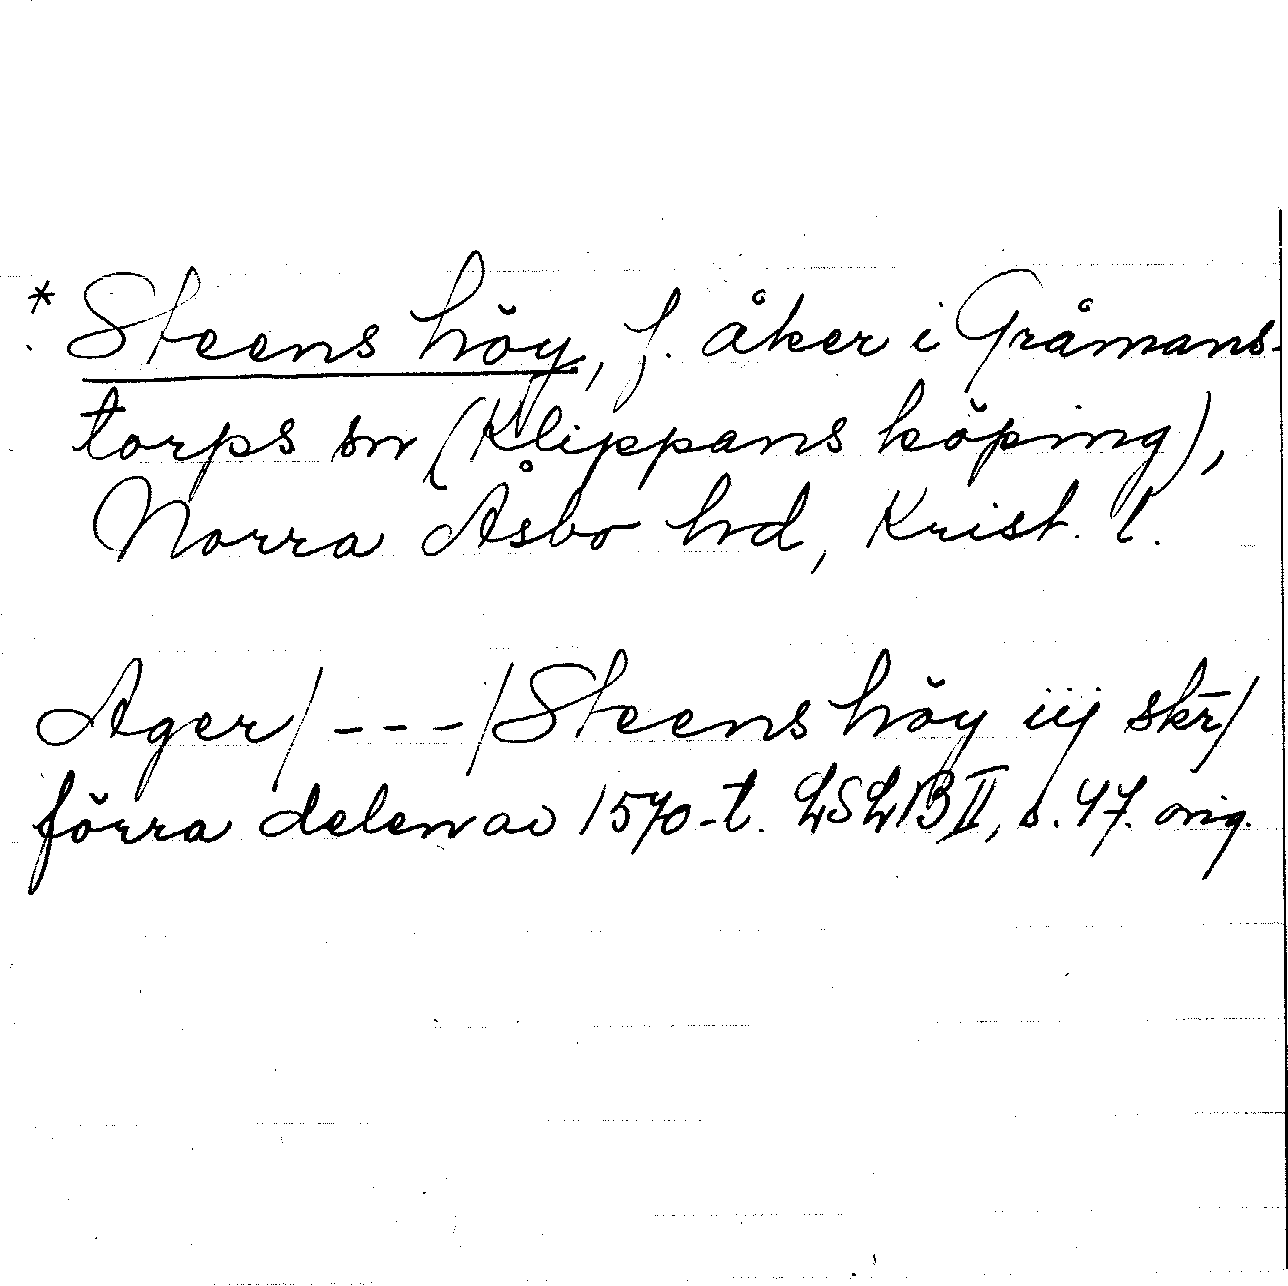 * Steens höy, f. åker i Gråmans-
torps sn (Klippans köping),
Norra Åsbo hd, Krist. l.
Ager/---/Steens höy iij skr̄/
förra delen av 1570-t. LSLB II, s. 47. orig.